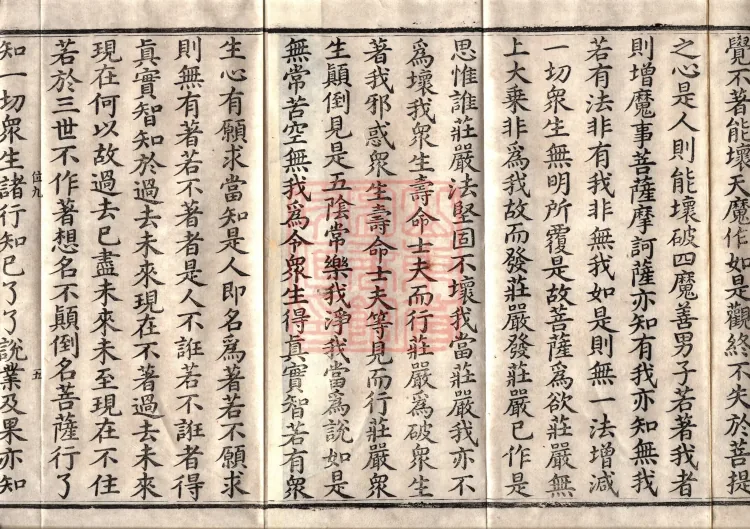 覺不著能壞天魔作如是觀終不失於菩提
之心是人則能壞破四魔善男子若著我者
則增魔事菩薩摩訶薩亦知有我亦知無我
若有法非有我非無我如是則無一法增減
一切衆生無明所覆是故菩薩爲欲莊嚴無
上大乘非爲我故而發莊嚴發莊嚴已作是
思惟誰莊嚴法堅固不壞我當莊嚴我亦不
爲壞我衆生壽命士夫而行莊嚴爲破衆生
著我邪惑衆生壽命士夫等見而行莊嚴衆
生顚倒見是五陰常樂我淨我當爲說如是
無常苦空無我爲令衆生得眞實智若有衆
生心有願求當知是人即名爲著若不願求
則無有著若不著者是人不誑若不誑者得
眞實智知於過去未來現在不著過去未來
現在何以故過去已盡未來未至現在不住
若於三世不作著想名不顚倒名菩薩行了
位九 五
知一切衆生諸行知已了了說業及果亦知